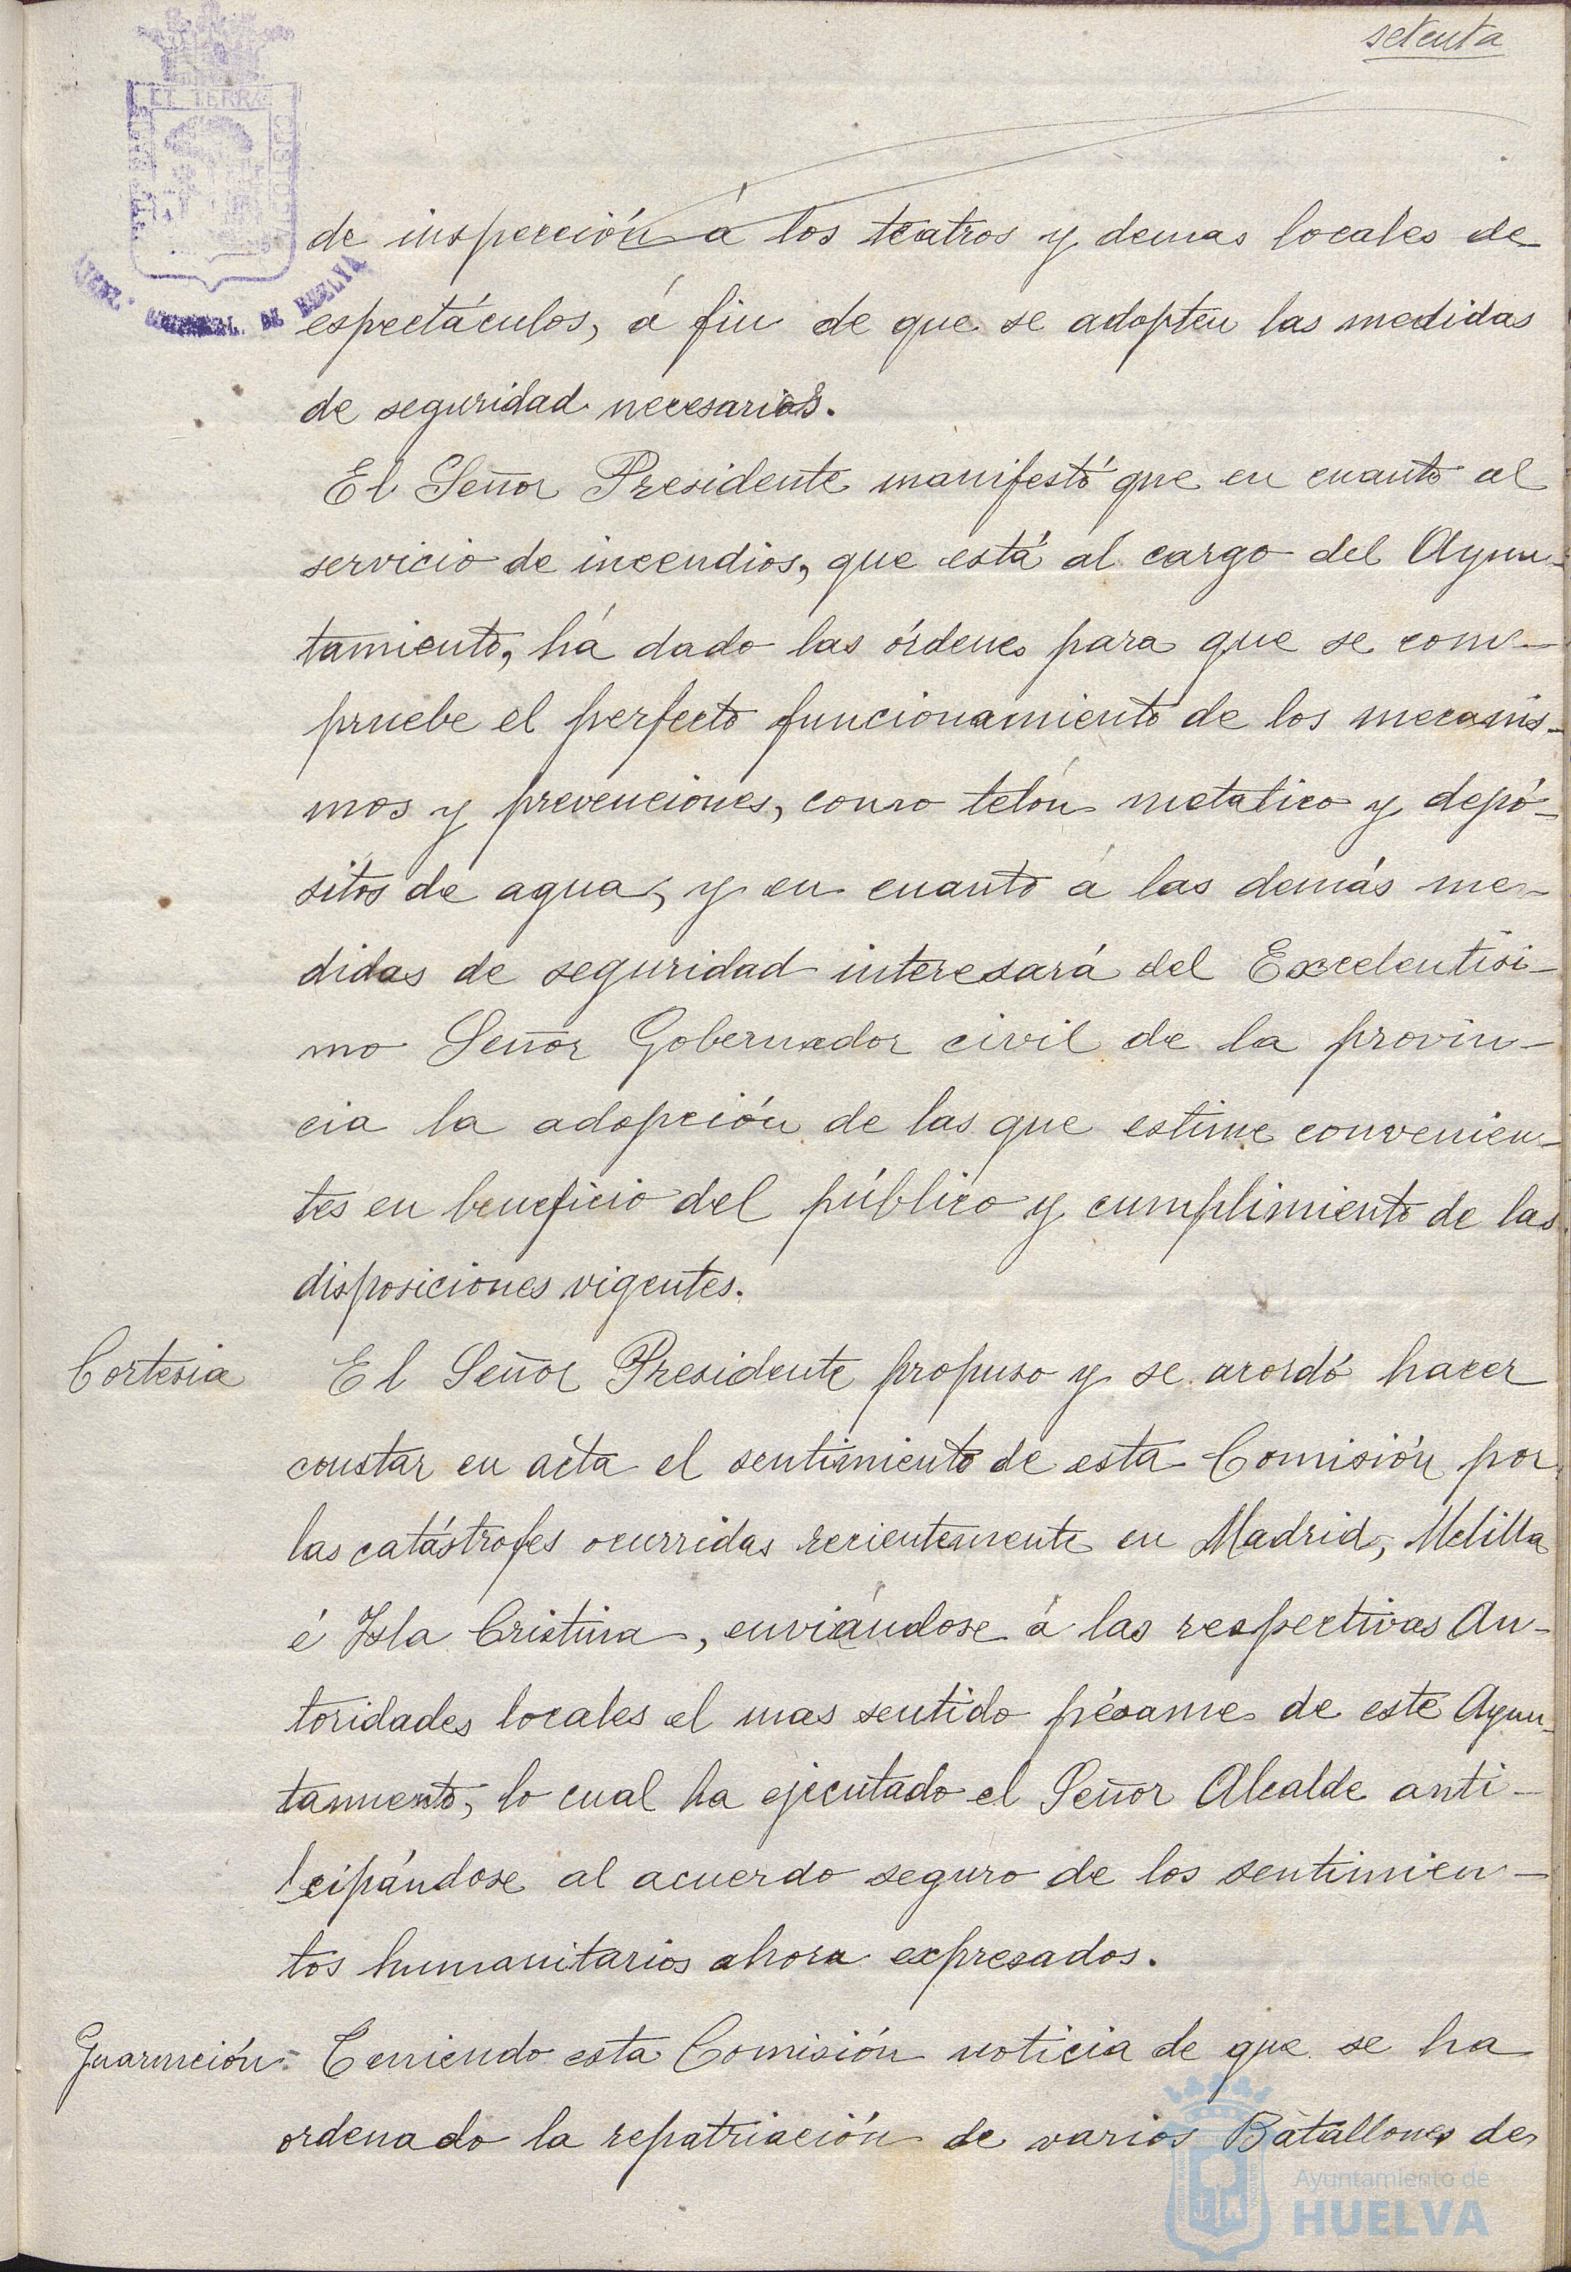 setenta
ET TERRÆ
DE HUELVA
de inspección á los teatros y demas locales de
espectáculos, á fin de que se adopten las medidas
de seguridad necesarias.
El Señor Presidente manifestó que en cuanto al
servicio de incendios, que está al cargo del Ayun-
tamiento, há dado las órdenes para que se com-
pruebe el perfecto funcionamiento de los mecanis-
mos y prevenciones, como telón metalico y depó-
sitos de agua, y en cuanto á las demás me-
didas de seguridad interesará del Excelentisi-
mo Señor Gobernador civil de la provin-
cia la adopción de las que estime convenien-
tes en beneficio del público y cumplimiento de las
disposiciones vigentes.
Cortesia El Señor Presidente propuso y se acordó hacer
constar en acta el sentimiento de esta Comisión por
las catástrofes ocurridas recientemente en Madrid, Melilla
é Isla Cristina, enviándose á las respectivas Au-
toridades locales el mas sentido pésame de este Ayun-
tamiento, lo cual ha ejecutado el Señor Alcalde anti-
cipándose al acuerdo seguro de los sentimien-
tos humanitarios ahora expresados.
Guarnición: Teniendo esta Comisión noticia de que se ha
ordenado la repatriación de varios Batallones de
Ayuntamiento de
HUELVA